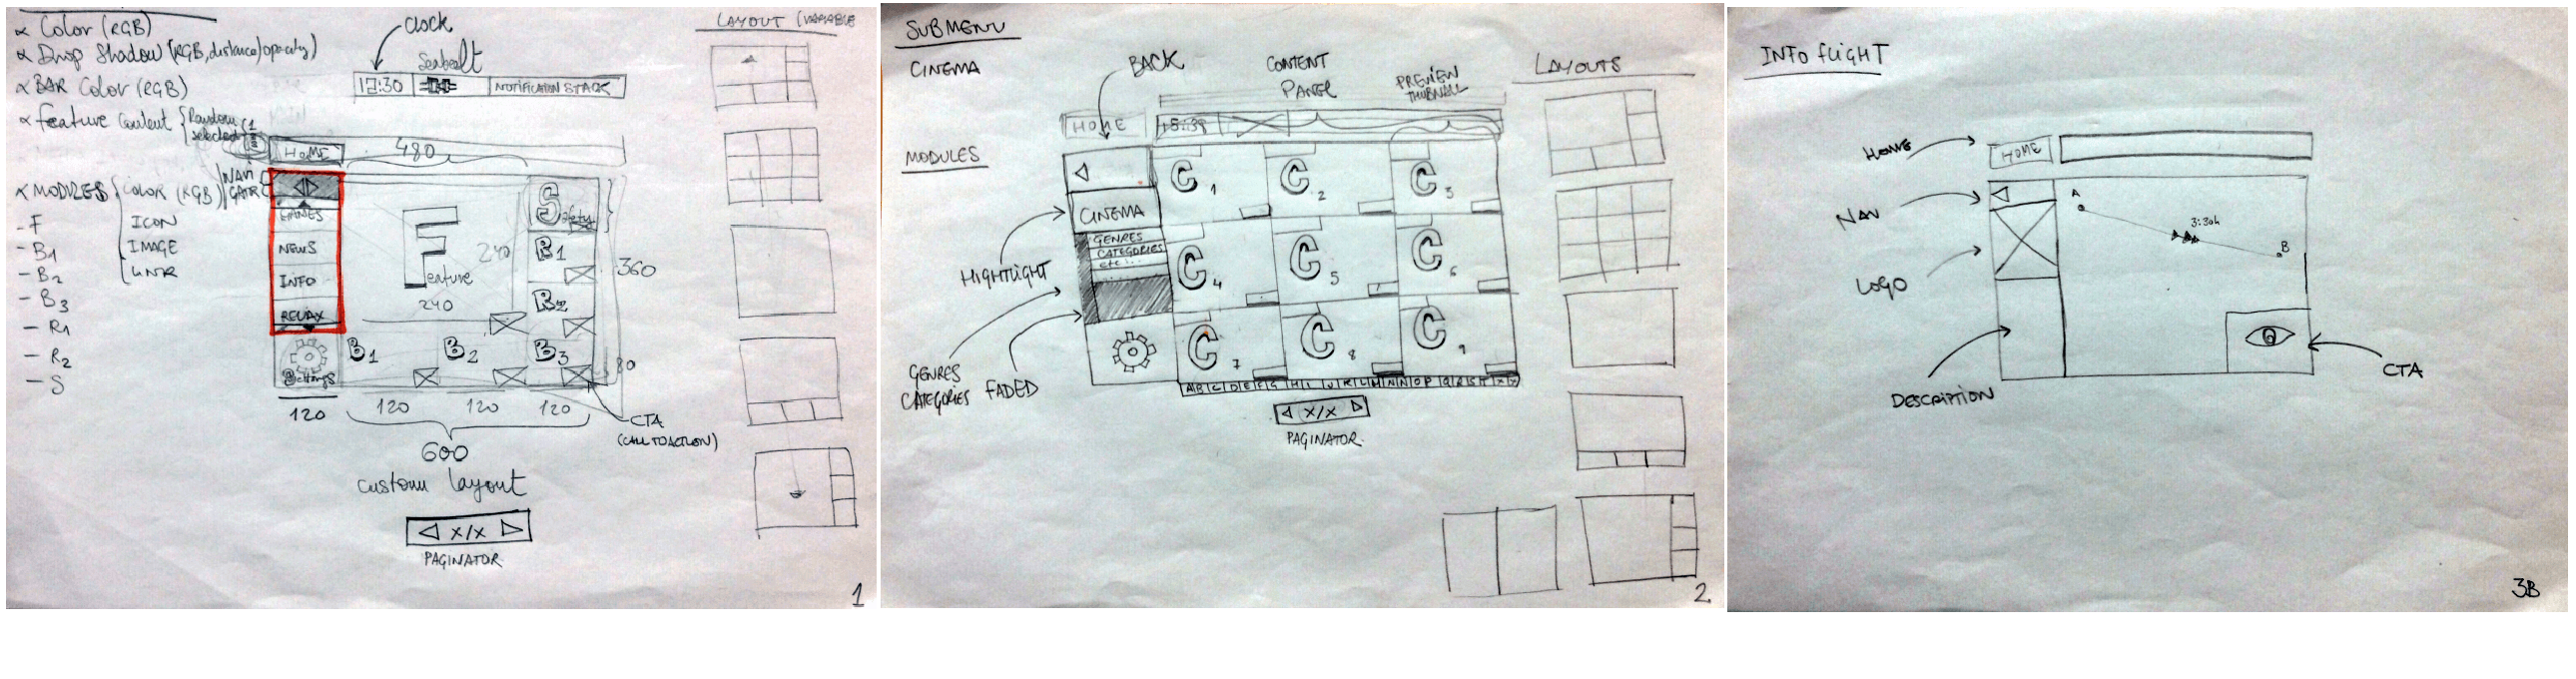 ∝ Color (RGB)
∝ Drop Shadow (RGB, distance/opacity)
∝ BAR Color (RGB)
∝ feature Content { Random 1
selected
∝ MODULES { COLOR (RGB)
ICON
IMAGE
LINK
- F
- B1
- B2
- B3
- R1
- R2
- S
clock
Seatbelt
12:30
NOTIFICATION STACK
HOME
480
NAVI
GATE
GAMES
NEWS
INFO
RELAX
Settings
Feature
240
240
Safety
B1
B2
360
B1
B2
B3
80
120
120
120
120
600
custom layout
CTA
(CALL TO ACTION)
◁ x/x ▷
PAGINATOR
LAYOUT (VARIABLE
1
SUBMENU
CINEMA
BACK
CONTENT
PANEL
PREVIEW
THUBNAIL
LAYOUTS
HOME
15:39
MODULES
CINEMA
GENRES
CATEGORIES
etc...
HIGHTLIGHT
GENRES
CATEGORIES
FADED
C1
C2
C3
C4
C5
C6
C7
C8
C9
◁ x/x ▷
PAGINATOR
2
INFO flIGHT
HOME
HOME
NAV
LOGO
DESCRIPTION
A
3:30h
B
CTA
3B